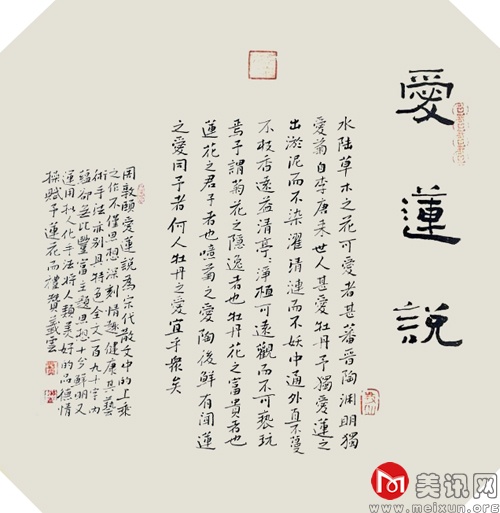 愛蓮說
水陆草木之花可愛者甚蕃晋陶渊明獨
愛菊自李唐来世人甚愛牡丹予獨愛蓮之
出淤泥而不染濯清漣而不妖中通外直不蔓
不枝香遠益清亭亭淨植可遠觀而不可亵玩
焉予謂菊花之隐逸者也牡丹花之富貴者也
蓮花之君子者也噫菊之愛陶後鮮有闻蓮
之愛同予者何人牡丹之愛宜乎衆矣
周敦頤愛蓮說為宋代散文中的上乘
之作不僅思想深刻情趣健康且藝
術手法亦别具特色全文一百九十字内
容却無比豐富主題思想十分鮮明又
運用拟人化手法将人類美好的品德情
操赋予蓮花而禮贊
美讯网
www.meixun.org